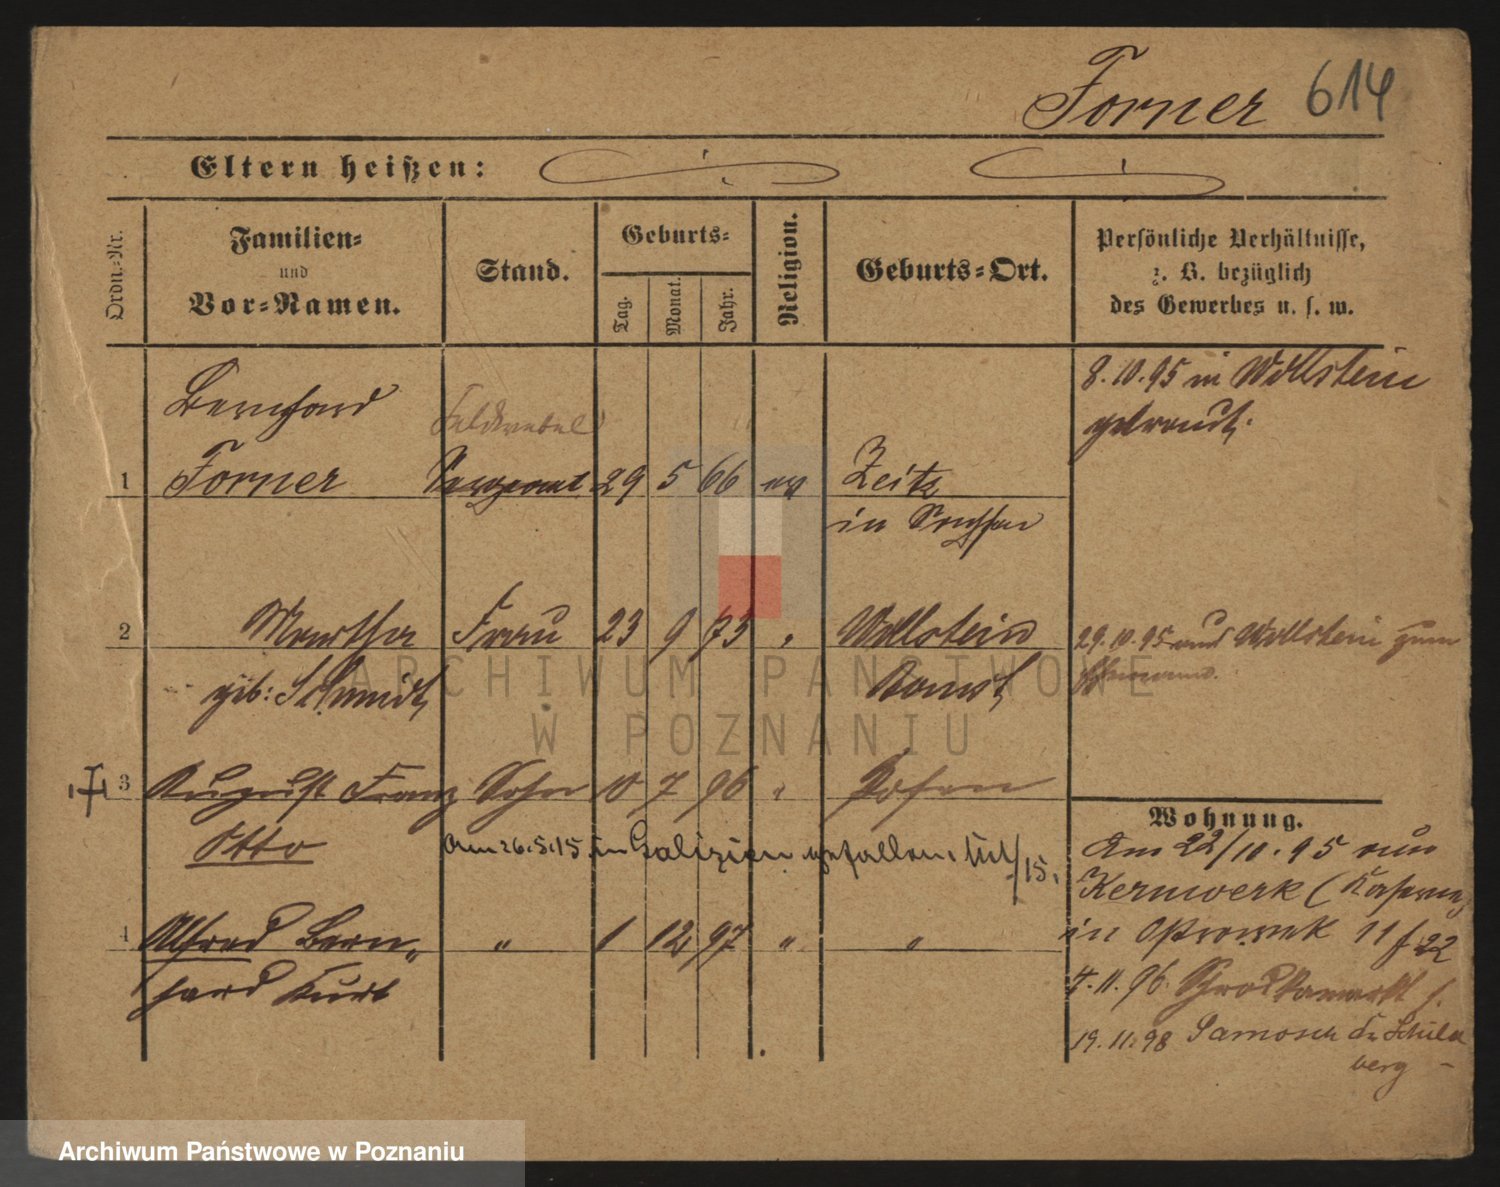 Forner 614
Eltern heißen:
Ordn.-Nr.
Familien-
und
Vor-Namen.
Stand.
Geburts-
Tag.
Monat.
Jahr.
Religion.
Geburts-Ort.
Persönliche Verhältnisse,
z. B. bezüglich
des Gewerbes u. s. w.
Bernhard
Feldwebel
1 Forner Sergeant 29 5 66 ev Zeitz
in
8.10.95 in Wollstein
getraut.
2 Martha Frau 23 9 73 " Wollstein
geb: Schmidt Bomst
29.10.95 aus Wollstein zum
Ehemann.
3 August Franz Sohn 10 7 96 " Posen
Otto am 26.5.15 in Galizien gefallen.
4 Alfred Bern- " 1 12 97 " "
hard Kurt
Wohnung.
Am 22/10.95 aus
Kernwerk (Kaserne
in 11 22
4.11.96.
19.11.98 Samosch
berg
ARCHIWUM PAŃSTWOWE
W POZNANIU
Archiwum Państwowe w Poznaniu